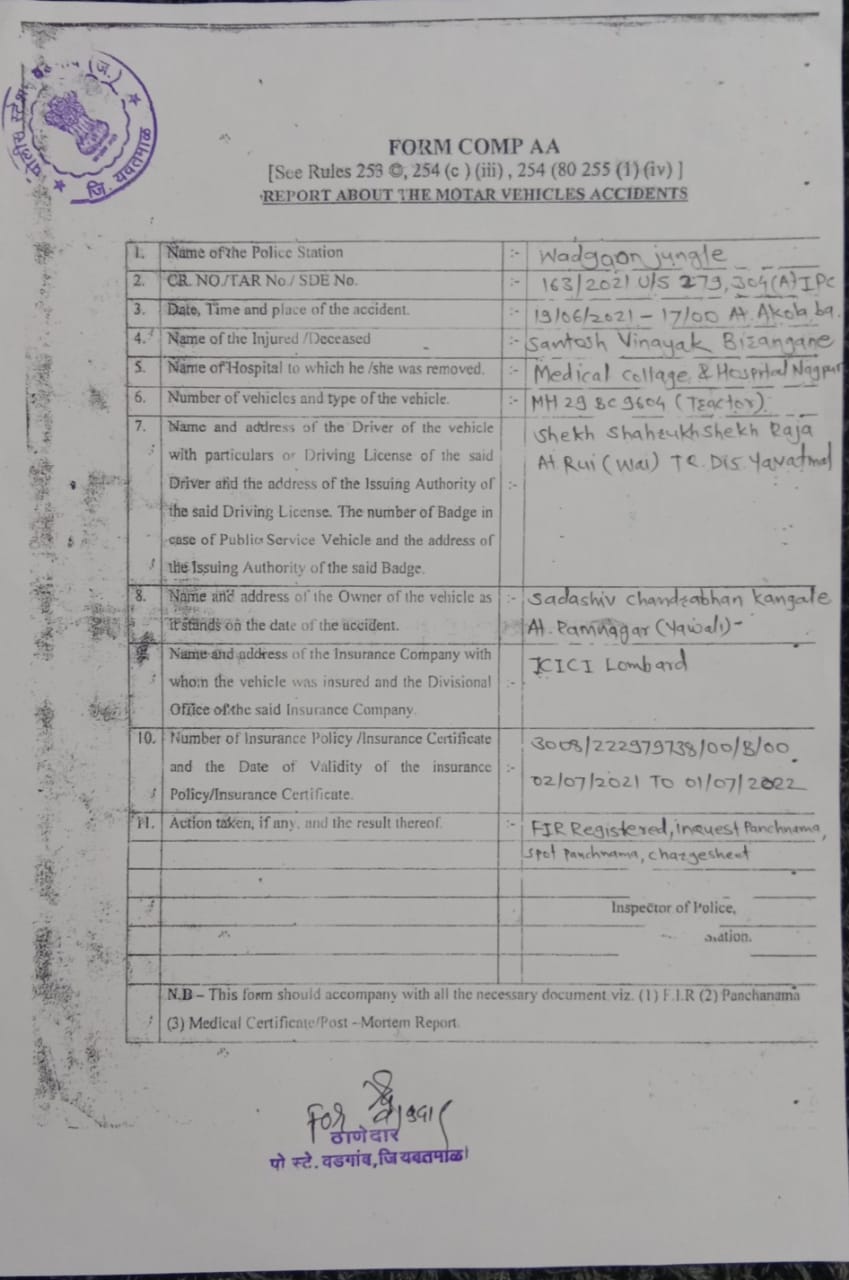 पोलीस स्टेशन व. (ज.)
जि. यवतमाळ
FORM COMP AA
[See Rules 253 ©, 254 (c ) (iii) , 254 (80 255 (1) (iv) ]
REPORT ABOUT THE MOTAR VEHICLES ACCIDENTS
1. Name of the Police Station :- Wadgaon jungle
2. CR. NO./TAR No./ SDE No. :- 163/2021 U/S 279, 304(A) IPC
3. Date, Time and place of the accident. :- 19/06/2021 – 17/00 At. Akola ba.
4. Name of the Injured /Deceased :- Santosh Vinayak Bisangane
5. Name of Hospital to which he /she was removed. :- Medical collage & Hospital Nagpur
6. Number of vehicles and type of the vehicle. :- MH 29 BC 9604 (Tractor)
7. Name and address of the Driver of the vehicle Shekh Shahrukh Shekh Raja
with particulars or Driving License of the said At. Rui (Wai) TR. Dis. Yavatmal
Driver and the address of the Issuing Authority of :-
the said Driving License. The number of Badge in
case of Public Service Vehicle and the address of
the Issuing Authority of the said Badge.
8. Name and address of the Owner of the vehicle as :- Sadashiv Chandrabhan Kangale
it stands on the date of the accident. At. Ramnagar (Yawali)-
Name and address of the Insurance Company with ICICI Lombard
whom the vehicle was insured and the Divisional :-
Office of the said Insurance Company.
10. Number of Insurance Policy /Insurance Certificate 3008/222979738/00/B/00
and the Date of Validity of the insurance :- 02/07/2021 TO 01/07/2022
Policy/Insurance Certificate.
11. Action taken, if any, and the result thereof. :- FIR Registered, inquest Panchnama,
spot panchnama, chargesheet
Inspector of Police,
Station.
N.B – This form should accompany with all the necessary document viz. (1) F.I.R (2) Panchanama
(3) Medical Certificate/Post –Mortem Report.
For
ठाणेदार
पो स्टे. वडगांव, जि यवतमाळ